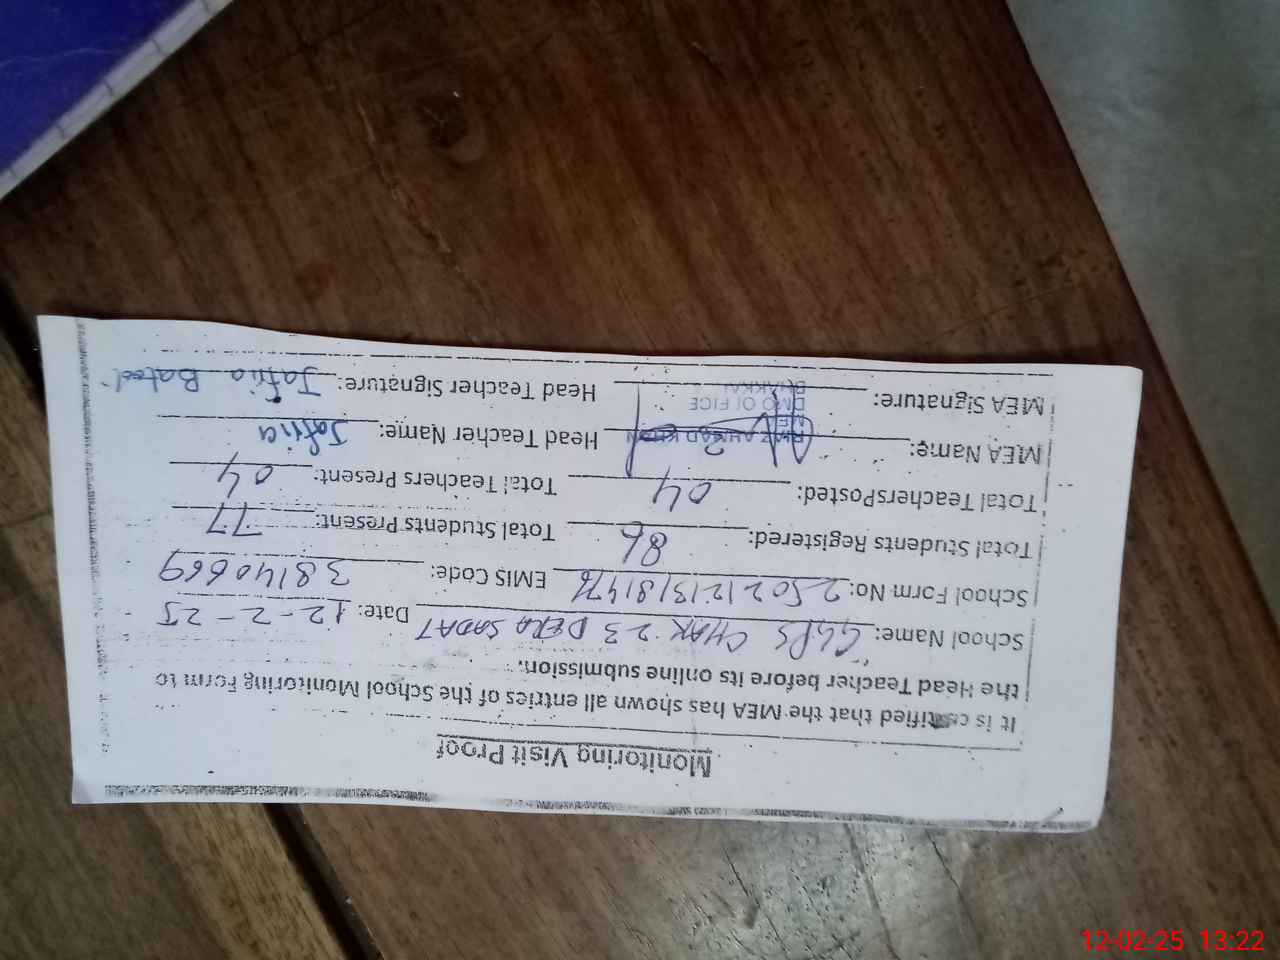 Monitoring Visit Proof
It is certified that the MEA has shown all entries of the School Monitoring Form to
the Head Teacher before its online submission.
School Name: GGPS CHAK 23 DERA SADAT Date: 12-2-25
School Form No: EMIS Code: 38140669
Total Students Registered: 86 Total Students Present: 77
Total Teachers Posted: 04 Total Teachers Present: 04
MEA Name: Head Teacher Name: Jafria
MEA Signature: Head Teacher Signature: Jafria Batool
AHMAD KHAN
DMO OFFICE
BHAKKAR
12-02-25 13:22